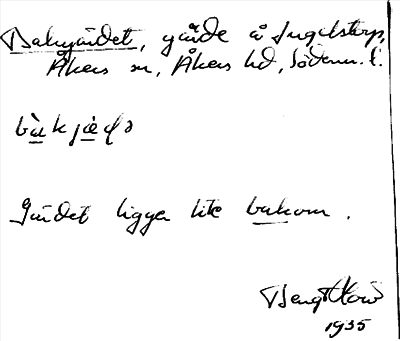 Bakgärdet, gärde å Ingelstorp,
Åkers sn, Åkers hd, Söderm. l.
Gärdet ligger lite bakom.
Bengt
1935